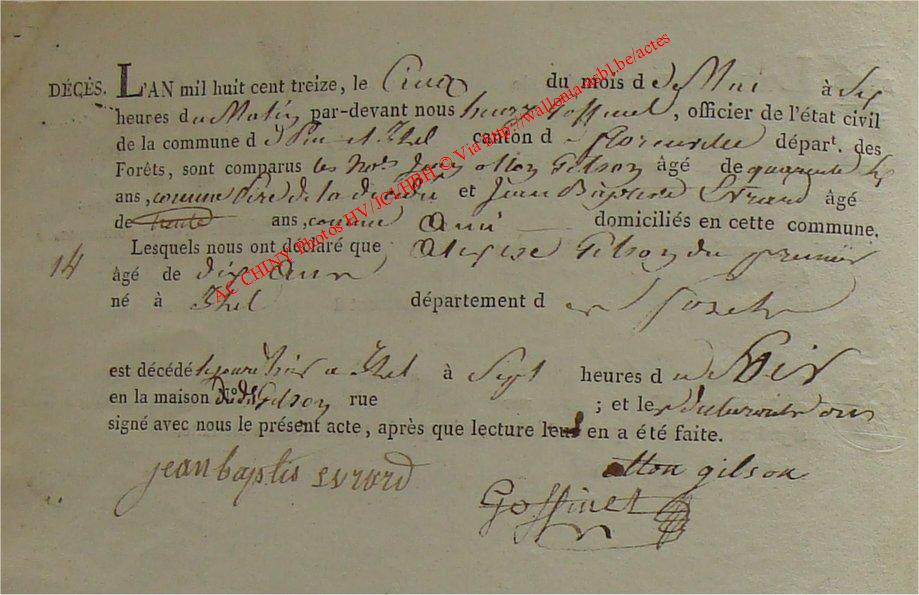 DÉCÈS. L'AN mil huit cent treize, le Cinq du mois de Mai à Six
heures du Matin par-devant nous henry Goffinet, officier de l'état civil
de la commune d'Pin et Izel canton de florenville départ. des
Forêts, sont comparus les nots Jean otton Gilson âgé de quarante six
ans, comme Père de la et Jean Baptiste Evrard âgé
de trente ans, comme ami domiciliés en cette commune.
Lesquels nous ont déclaré que Gilson du premier
14 âgé de dix ans
né à Izel département des forets
est décédé hier a Izel à Sept heures du Soir
en la maison No. de Gilson rue ; et les ont
signé avec nous le présent acte, après que lecture leur en a été faite.
jean baptis evrard otton gilson
Goffinet
Ac CHINY Photos HV JCVHBH © Via http://wallonia.asbl.be/actes